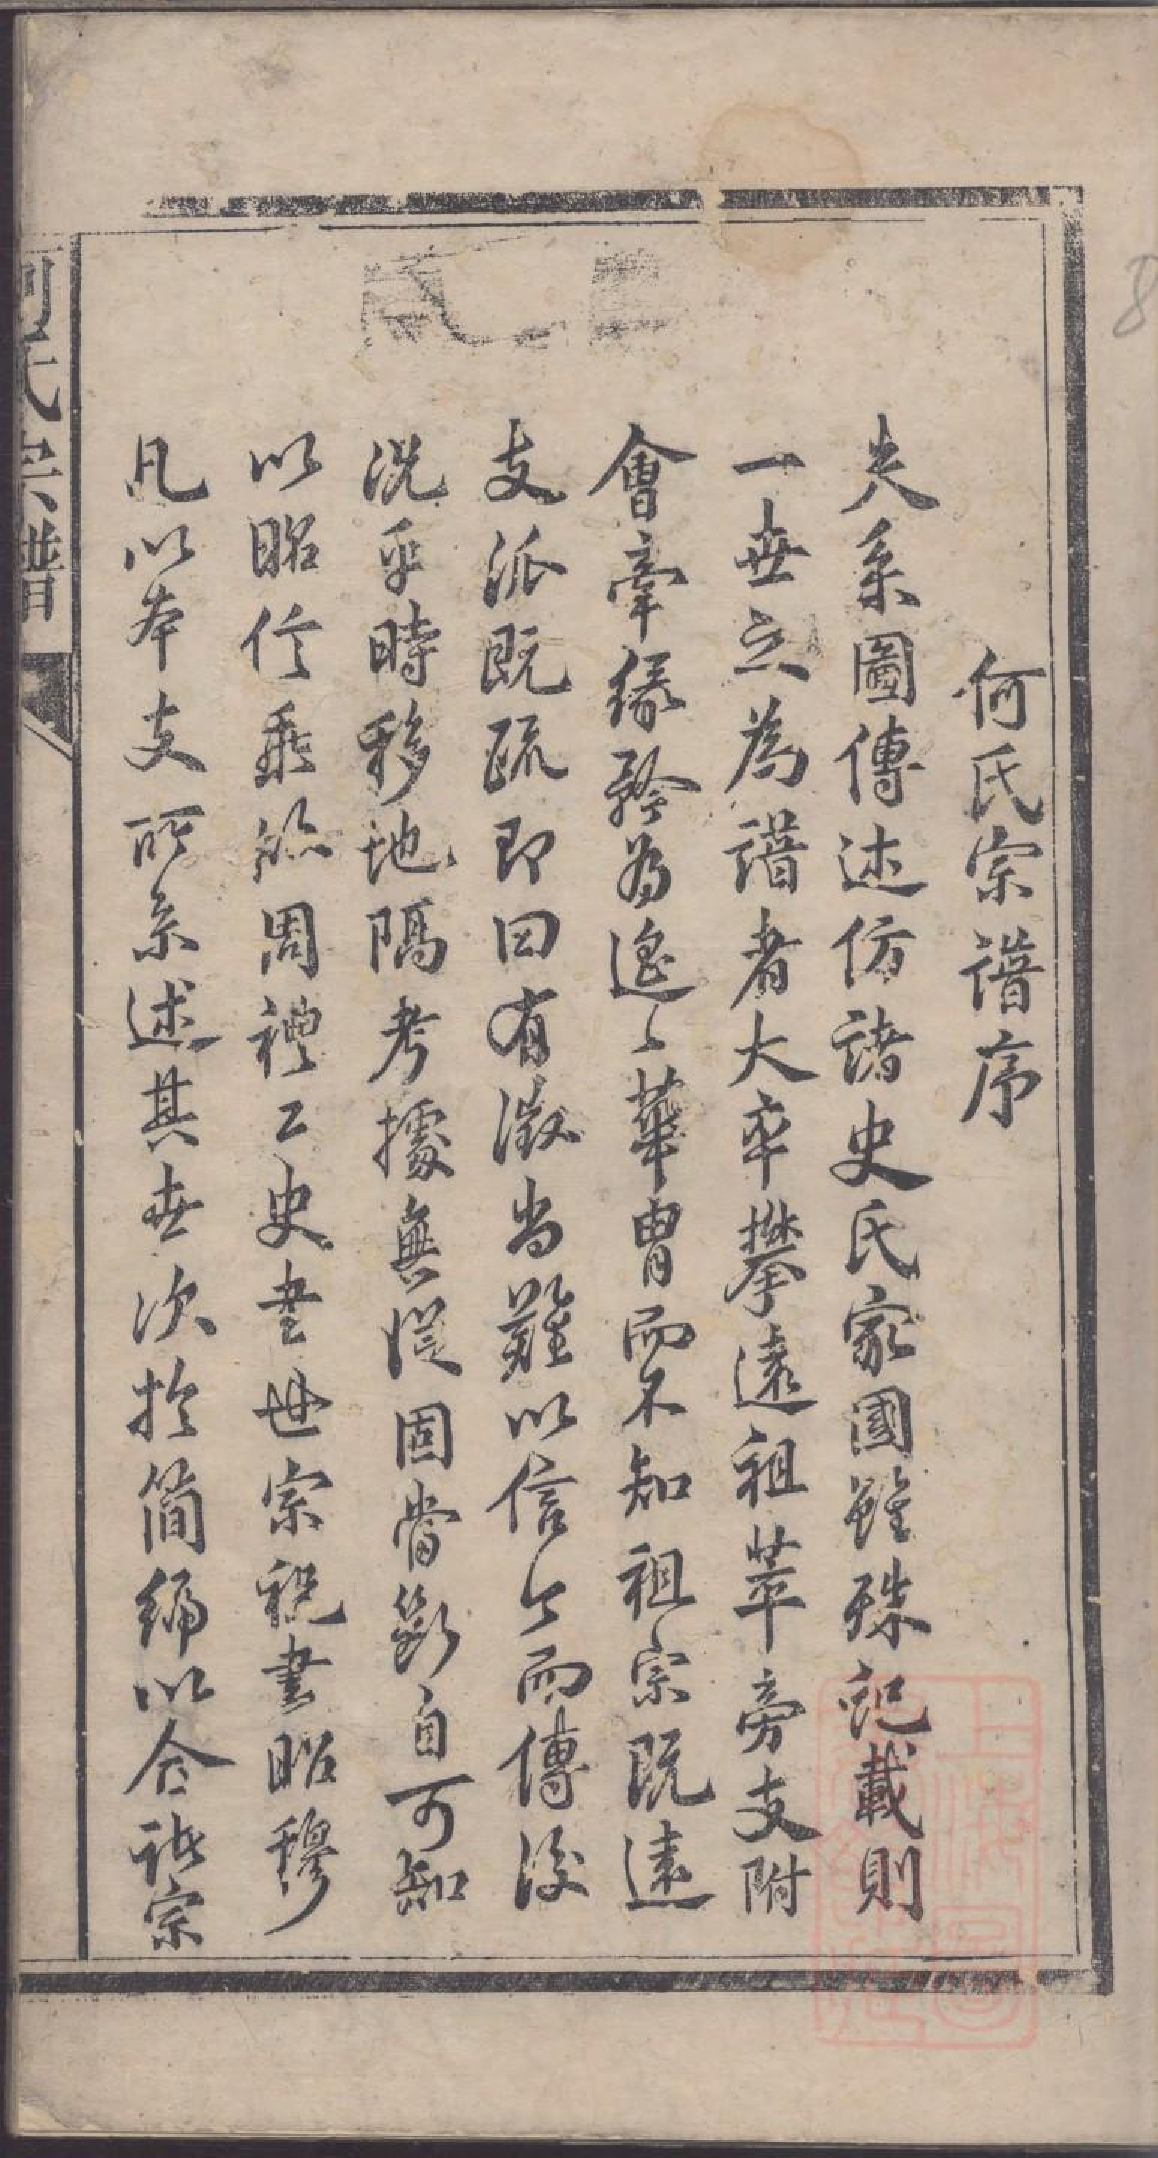 何氏宗譜序
夫系圖傳述仿諸史氏家國雖殊紀載則
一世之為譜者大率攀遠祖萃旁支附
會牽緣矜為遙遙華胄而不知祖宗既遠
支派既疏即曰有徵尚難以信今而傳後
況乎時移地隔考據無從固當斷自可知
以昭信垂俗周禮工史書世宗祝書昭穆
凡以本支所系述其世次於簡編以合詠宗
氏宗譜
8
上海圖